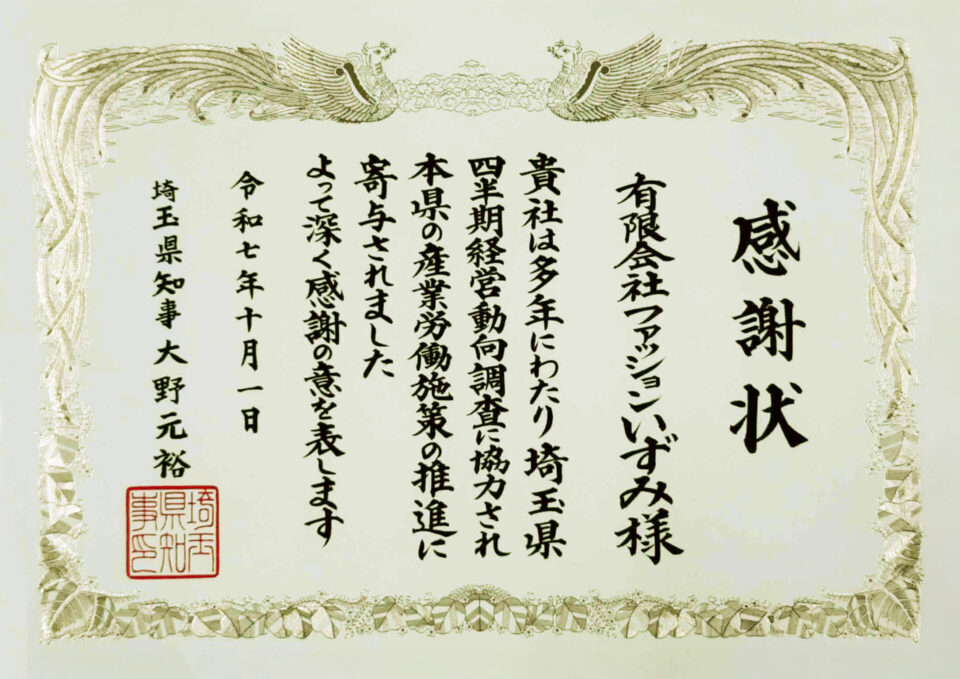 感謝状
有限会社ファッションいずみ様
貴社は多年にわたり埼玉県
四半期経営動向調査に協力され
本県の産業労働施策の推進に
寄与されました
よって深く感謝の意を表します
令和七年十月一日
埼玉県知事大野元裕
埼玉
県知
事印